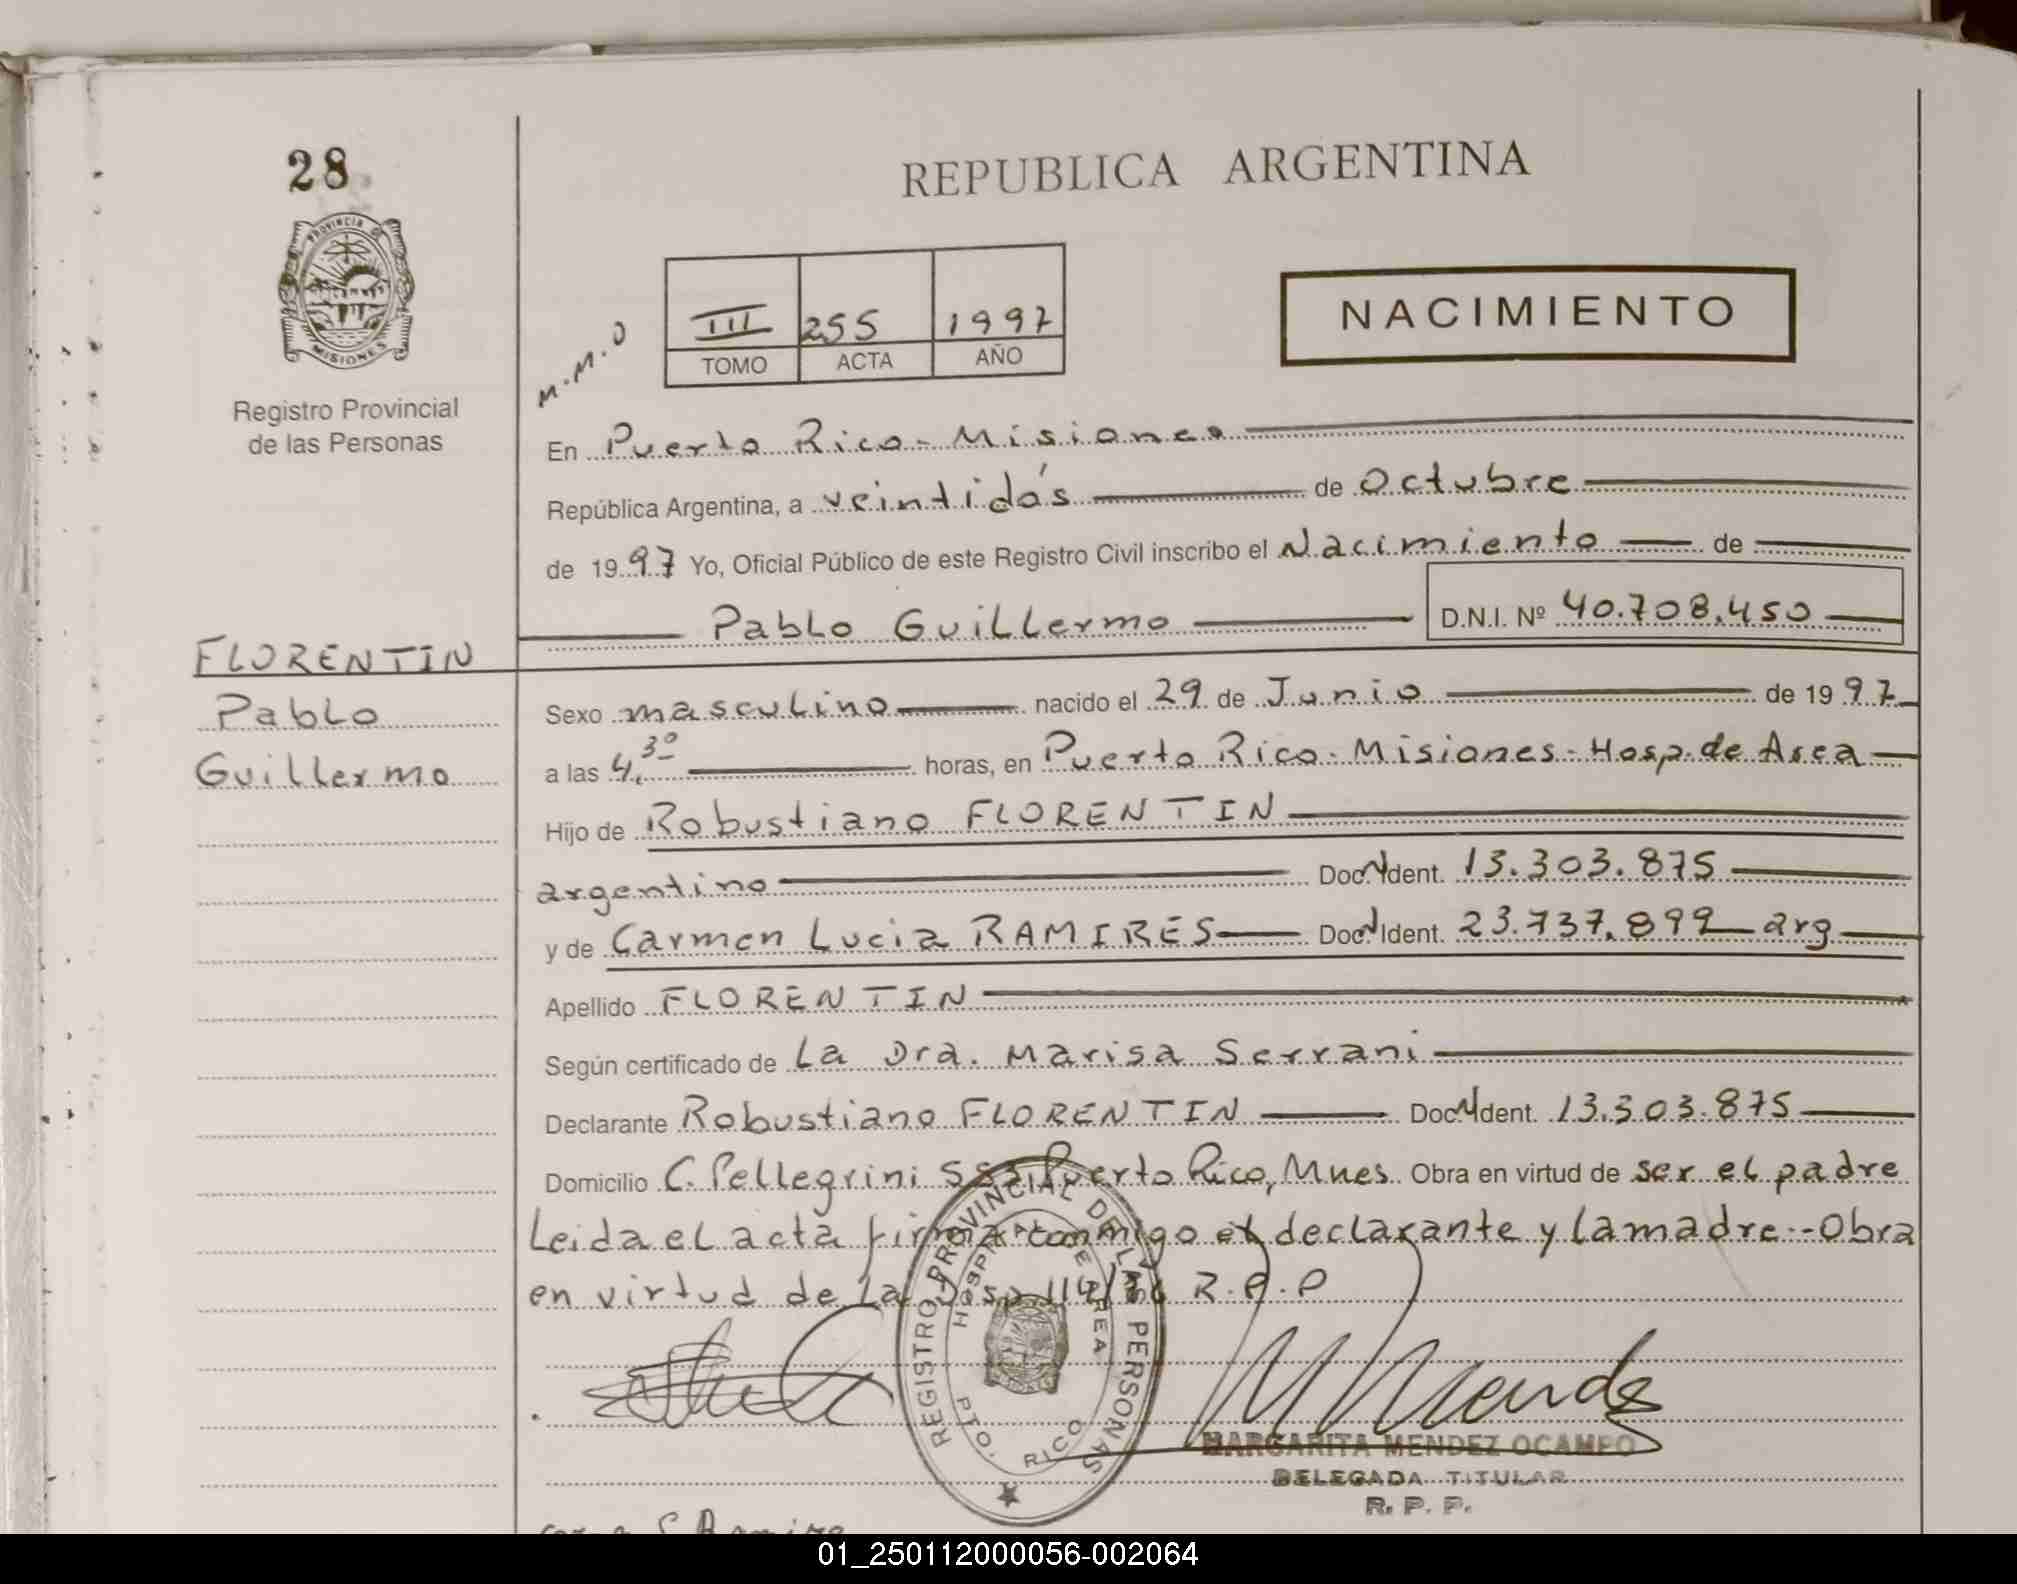 28
REPUBLICA ARGENTINA
PROVINCIA DE
MISIONES
Registro Provincial
de las Personas
M.M.O
III 255 1997
TOMO ACTA AÑO
NACIMIENTO
En Puerto Rico - Misiones
República Argentina, a veintidós de Octubre
de 1997 Yo, Oficial Público de este Registro Civil inscribo el Nacimiento de
Pablo Guillermo D.N.I. Nº 40.708.450
FLORENTIN
Pablo
Guillermo
Sexo masculino nacido el 29 de Junio de 1997
a las 4.30 horas, en Puerto Rico - Misiones - Hosp. de Area
Hijo de Robustiano FLORENTIN
argentino Doc. Ident. 13.303.875
y de Carmen Lucia RAMIRES Doc. Ident. 23.737.899 arg
Apellido FLORENTIN
Según certificado de La Dra. Marisa Serrani
Declarante Robustiano FLORENTIN Doc. Ident. 13.303.875
Domicilio C. Pellegrini Puerto Rico, Mnes. Obra en virtud de ser el padre
Leida el acta firma conmigo el declarante y la madre -- Obra
en virtud de la Disp 114/ R.P.P
REGISTRO PROVINCIAL DE LAS PERSONAS
HOSPITAL DE AREA
PTO. RICO
M Mendez
MARGARITA MENDEZ OCAMPO
DELEGADA TITULAR
R. P. P.
01_250112000056-002064